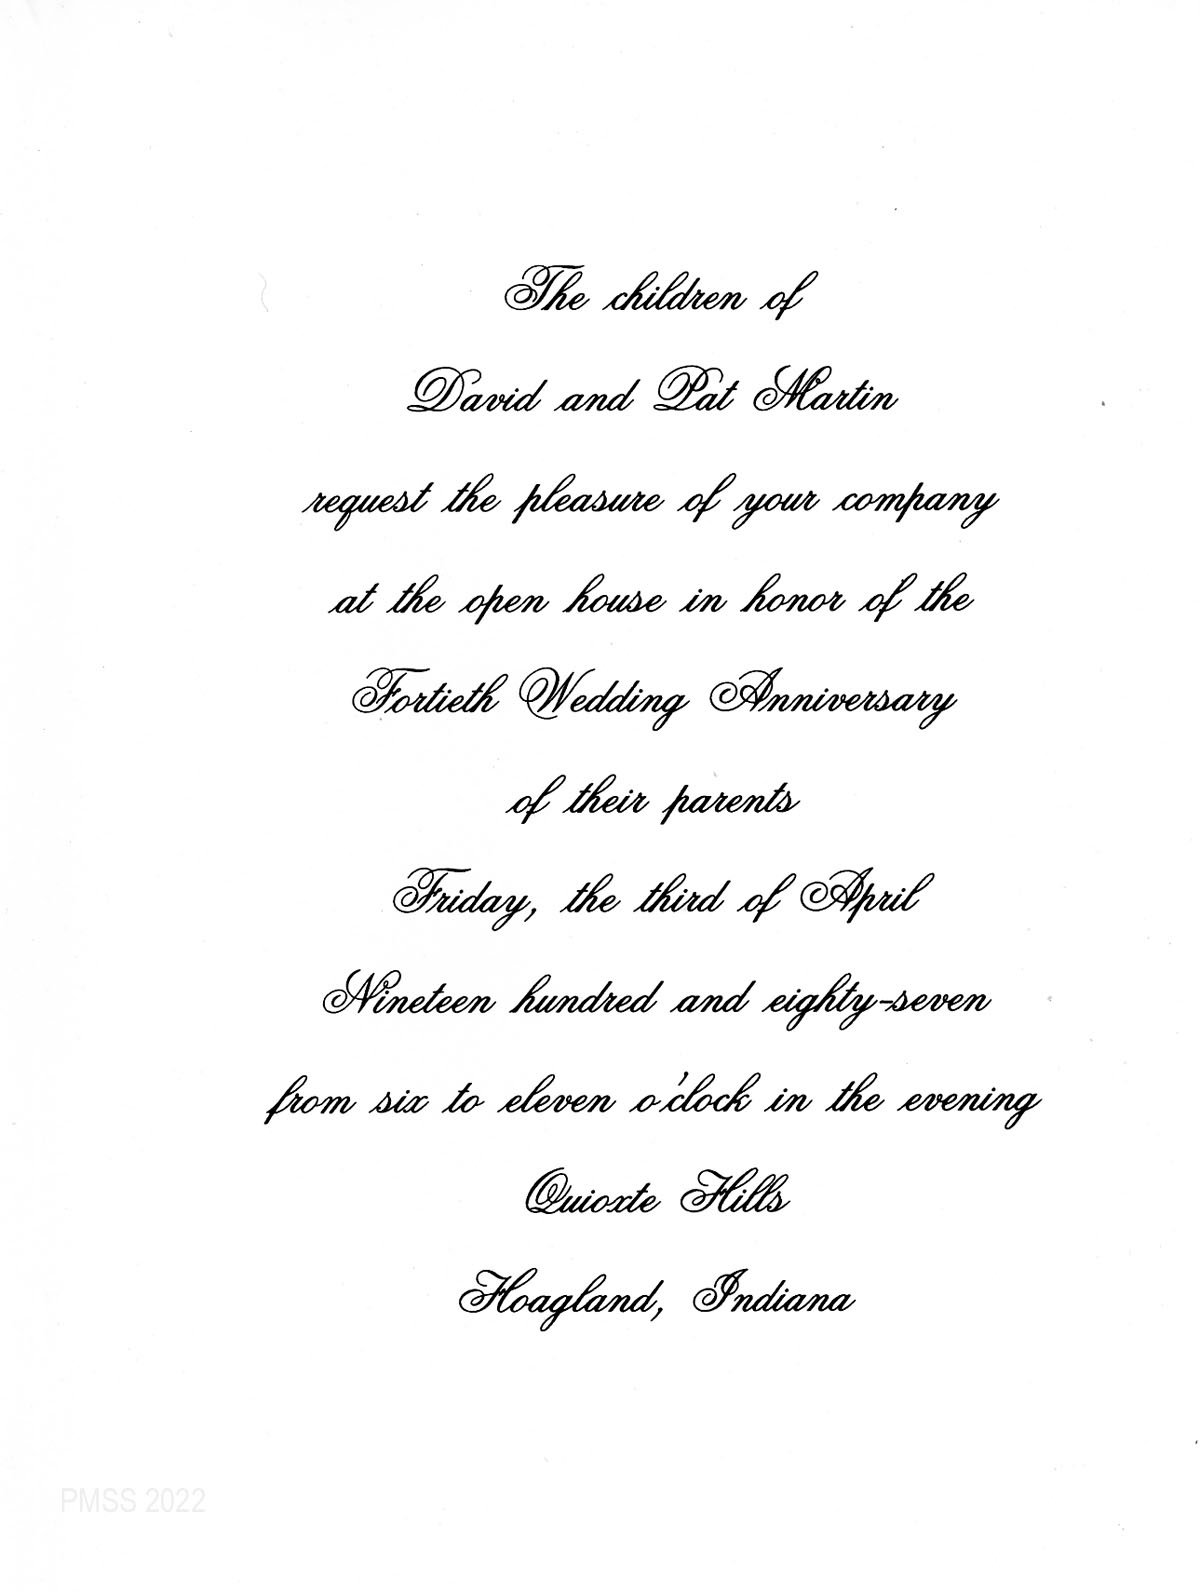 The children of
David and Pat Martin
request the pleasure of your company
at the open house in honor of the
Fortieth Wedding Anniversary
of their parents
Friday, the third of April
Nineteen hundred and eighty-seven
from six to eleven o'clock in the evening
Quioxte Hills
Hoagland, Indiana
PMSS 2022